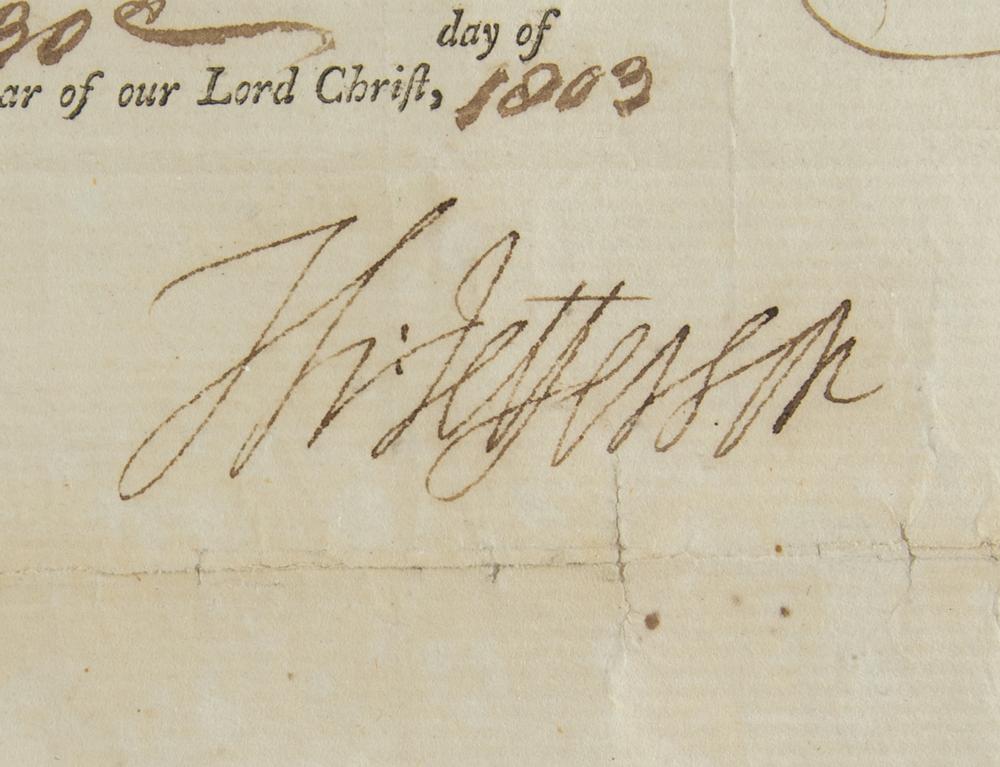 30 day of
ar of our Lord Chriſt, 1803
Th: Jefferson